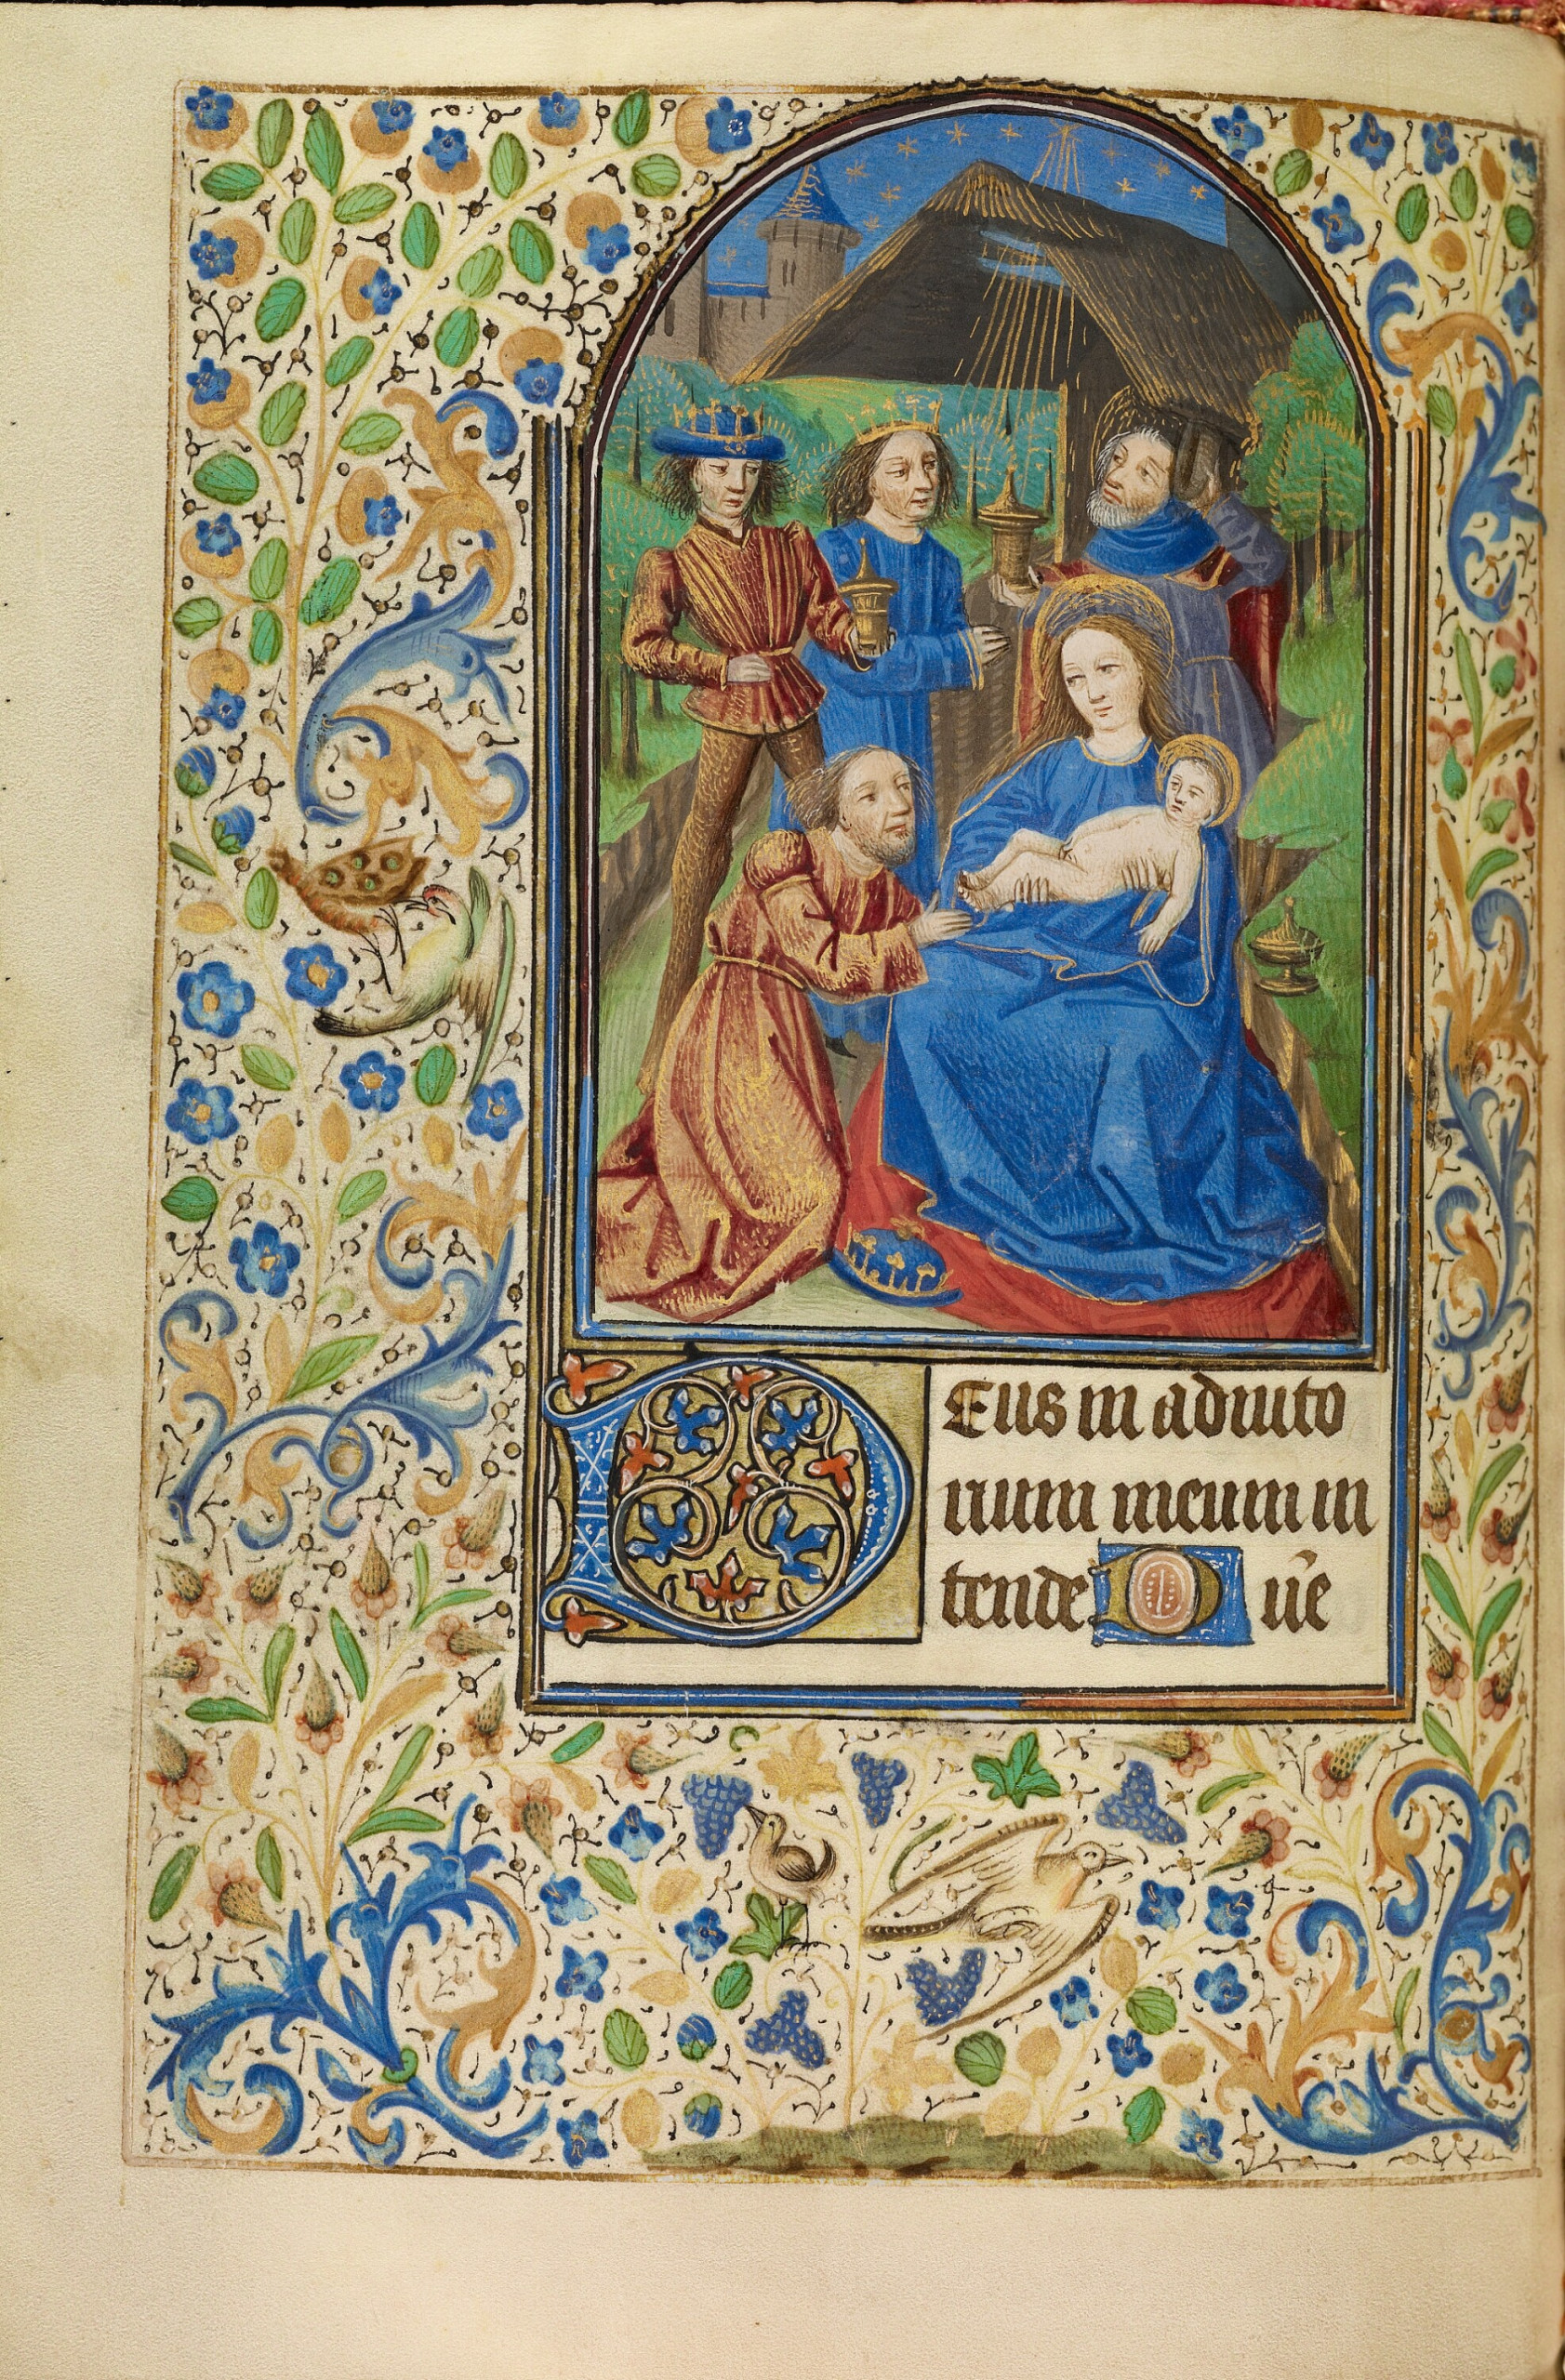 Deus in adiuto
rium meum in
tende D n̄e